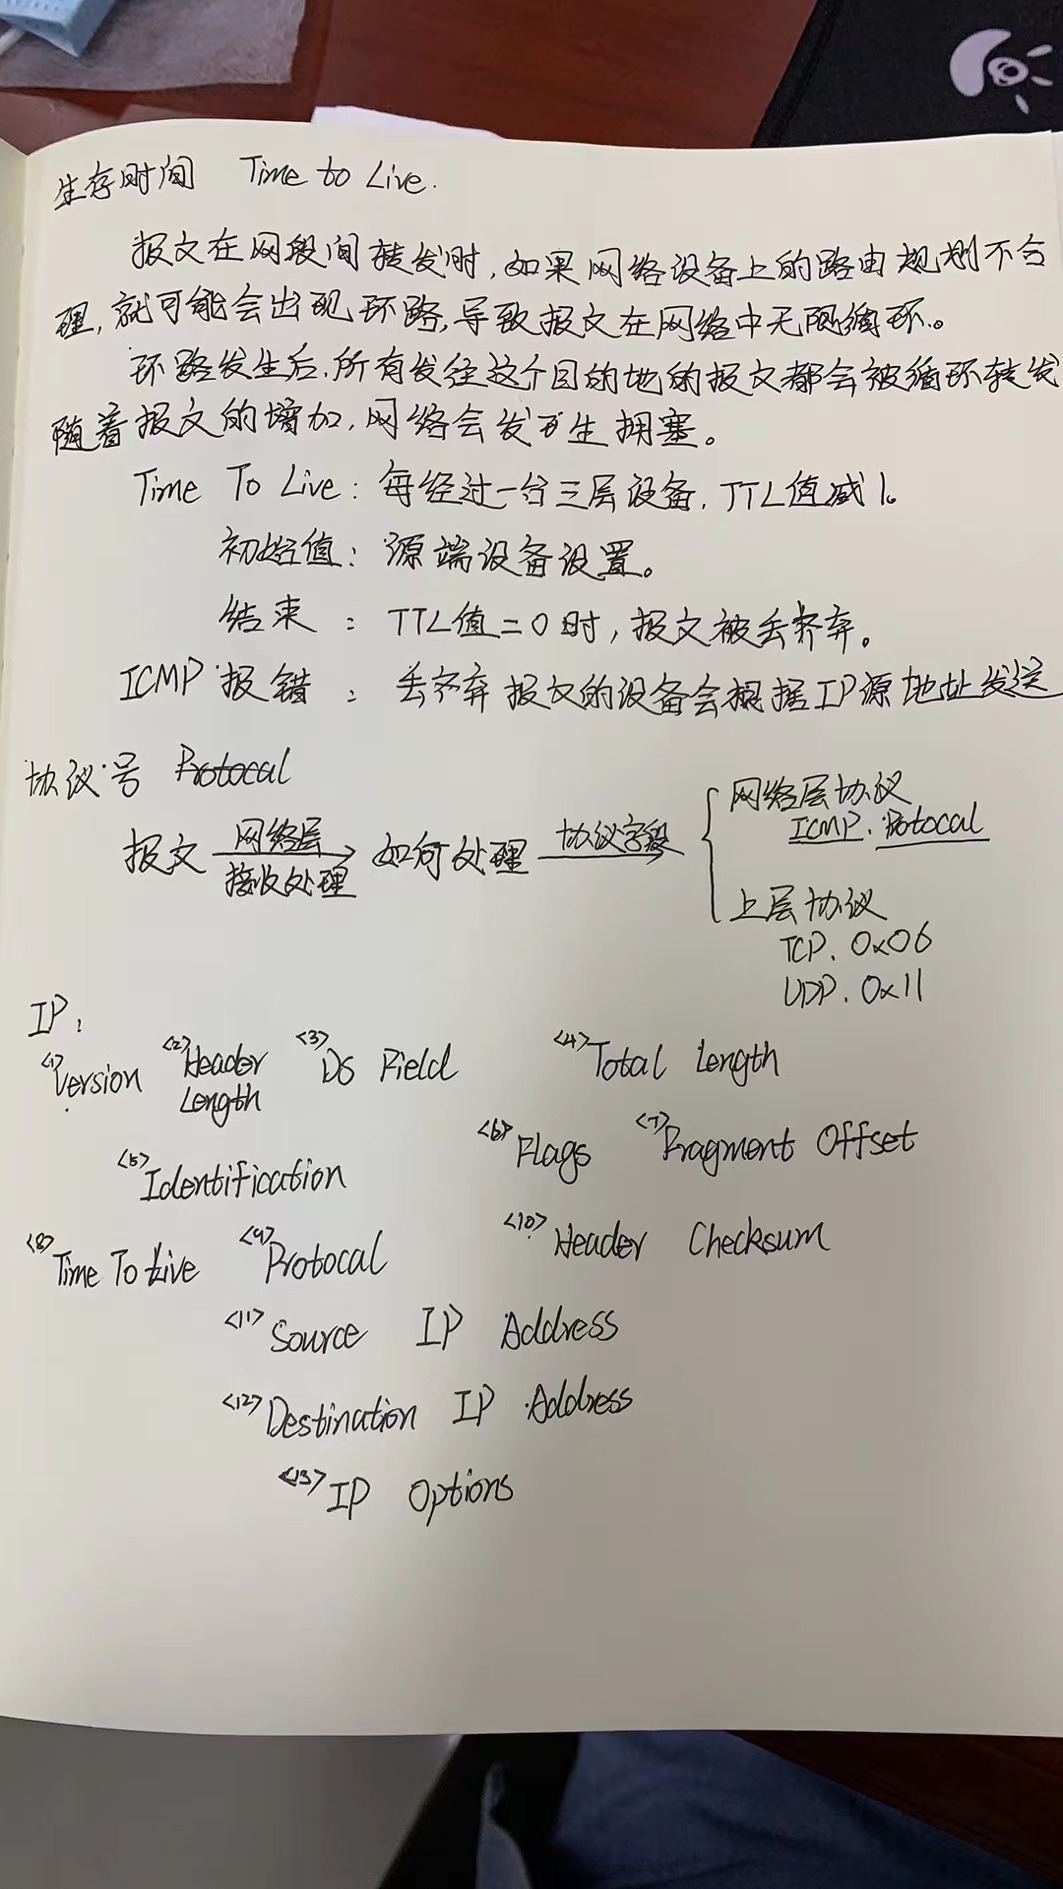 生存时间 Time to Live.
报文在网段间转发时,如果网络设备上的路由规划不合
理,就可能会出现环路,导致报文在网络中无限循环。
环路发生后,所有发往这个目的地的报文都会被循环转发
随着报文的增加,网络会发生拥塞。
Time To Live: 每经过一台三层设备,TTL值减1。
初始值: 源端设备设置。
结束 : TTL值=0时,报文被丢弃。
ICMP报错 : 丢弃报文的设备会根据IP源地址发送
协议号 Protocal
报文 网络层 接收处理 如何处理 协议字段
网络层协议
ICMP. Protocal
上层协议
TCP. 0x06
UDP. 0x11
IP:
<1>Version <2>Header Length <3>DS Field <4>Total Length
<5>Identification <6>Flags <7>Fragment Offset
<8>Time To Live <9>Protocal <10>Header Checksum
<11>Source IP Address
<12>Destination IP Address
<13>IP Options